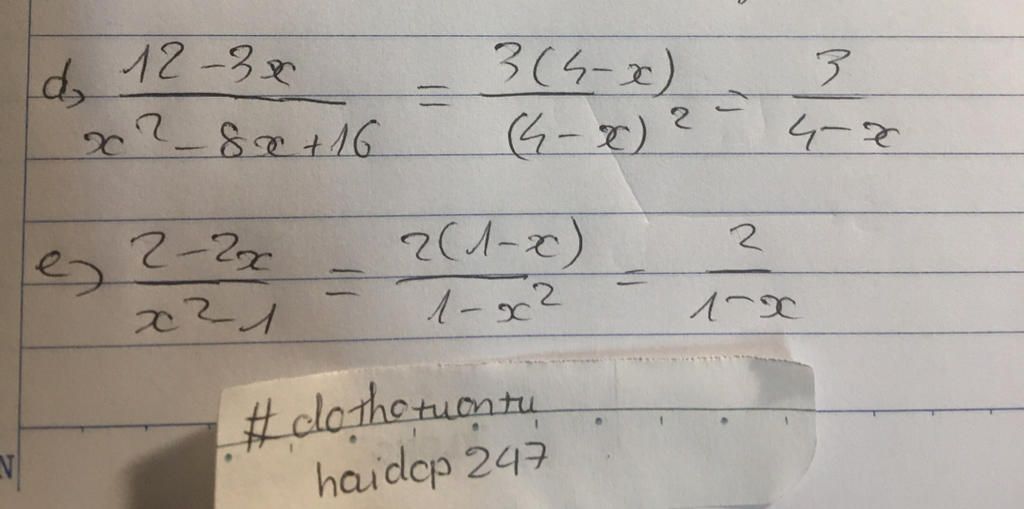 d, 12-3x / x²-8x+16 = 3(4-x) / (4-x)² = 3 / 4-x
e, 2-2x / x²-1 = 2(1-x) / 1-x² = 2 / 1-x
#dothotuontu
haidcp 247
N